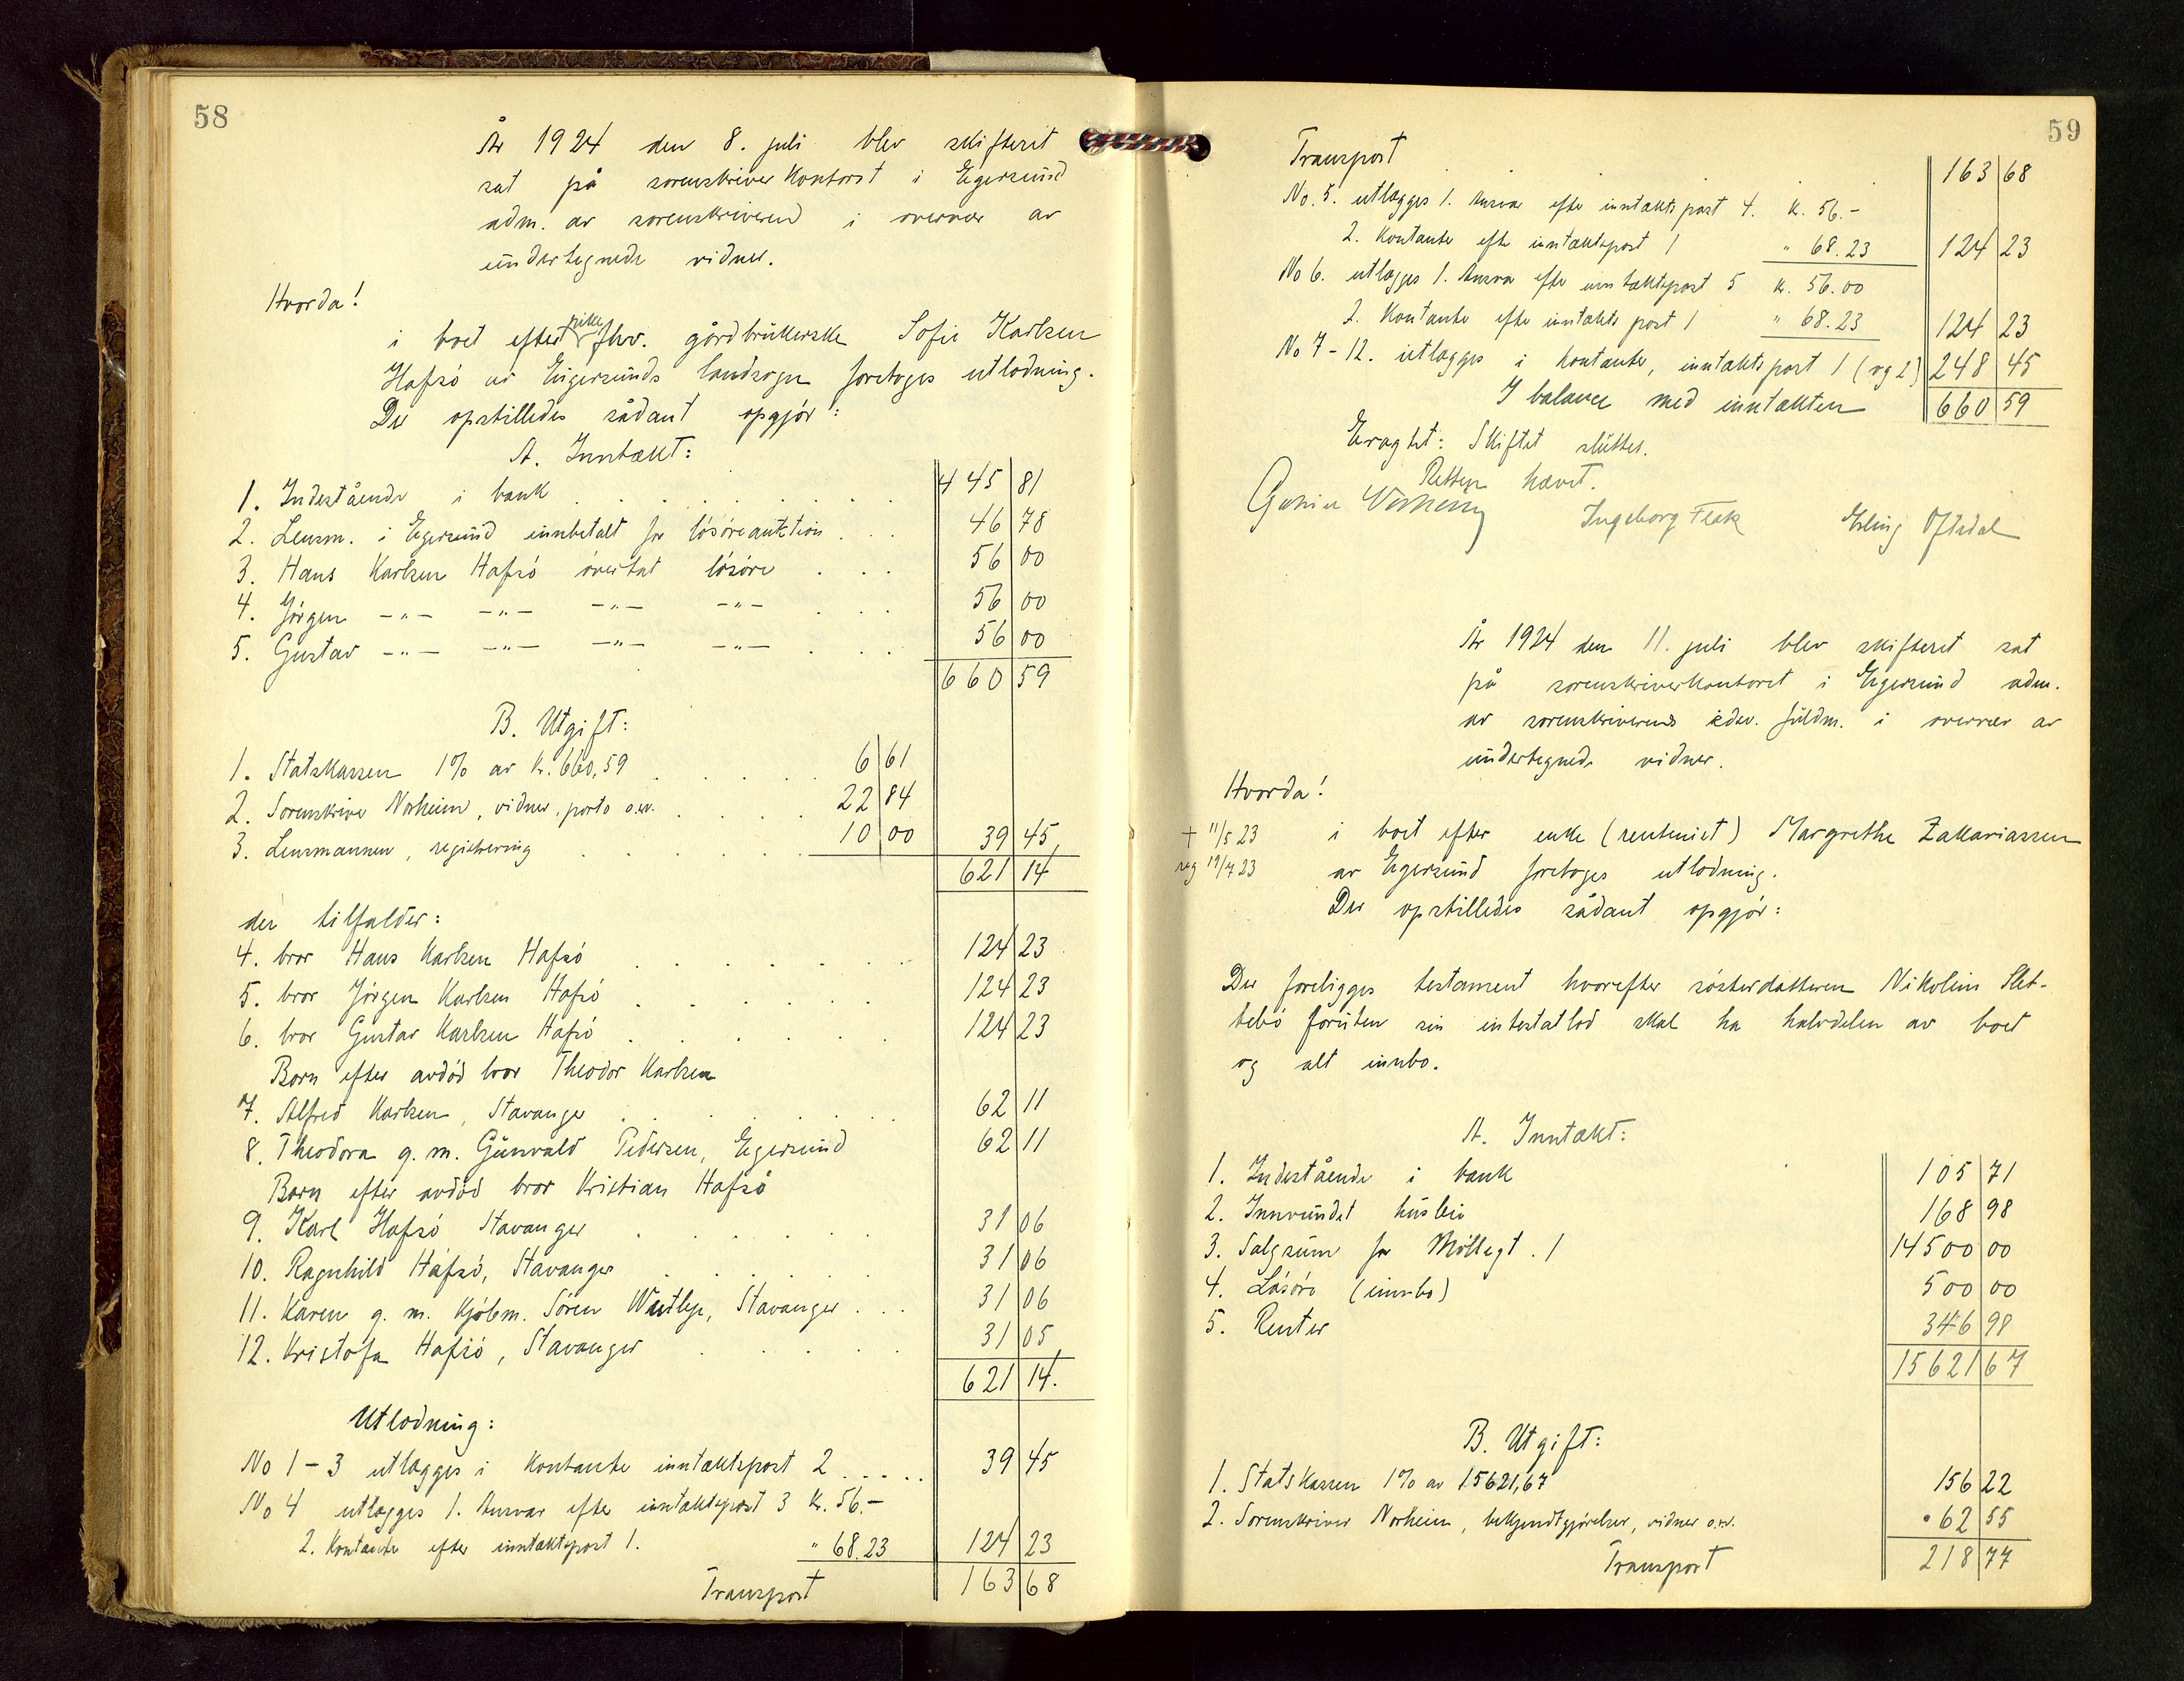 58
År 1924 den 8. juli blev skifteret
sat på sorenskriverkontoret i Egersund
adm. av sorenskriveren i overvær av
undertegnede vidner.
Hvorda!
i boet efter pike fhv. gårdbrukerske Sofie Karlsen
Hafsö av Eigersunds landsogn foretoges utlodning.
Der opstilledes sådant opgjör:
A. Inntækt:
1. Indestående i bank . . . . . . . . 445 81
2. Lensm. i Egersund innbetalt for lösöreauktion . . . 46 78
3. Hans Karlsen Hafsö overtat lösöre . . . 56 00
4. Jörgen -"- -"- -"- -"- . . . 56 00
5. Gustav -"- -"- -"- -"- . . . 56 00
660 59
B. Utgift:
1. Statskassen 1% av kr. 660,59 . . . . . 6 61
2. Sorenskriver Norheim, vidner, porto o.sv. . . . . 22 84
3. Lensmannen, registrering . . . . . . 10 00 39 45
621 14
der tilfalder:
4. bror Hans Karlsen Hafsö . . . . . . . 124 23
5. bror Jörgen Karlsen Hafsö . . . . . . 124 23
6. bror Gustav Karlsen Hafsö . . . . . . 124 23
Born efter avdöd bror Theodor Karlsen
7. Alfred Karlsen, Stavanger . . . . . . . 62 11
8. Theodora g. m. Gunvald Pedersen, Egersund 62 11
Born efter avdöd bror Kristian Hafsö
9. Karl Hafsö Stavanger . . . . . . 31 06
10. Ragnhild Hafsö, Stavanger . . . . . . 31 06
11. Karen g. m. Kjöbm. Sören Westlye, Stavanger . . . 31 06
12. Kristofa Hafsö, Stavanger . . . . . 31 05
621 14.
Utlodning:
No 1-3 utlægges i kontanter inntæktspost 2 . . . . . 39 45
No 4 utlægges 1. Ansvar efter inntæktspost 3 kr. 56.-
2. Kontanter efter inntæktspost 1. " 68.23 124 23
Transport 163 68
59
Transport 163 68
No. 5. utlægges 1. Ansvar efter inntæktspost 4. kr. 56.-
2. Kontanter efter inntæktspost 1 " 68.23 124 23
No 6. utlægges 1. Ansvar efter inntæktspost 5 kr. 56.00
2. Kontanter efter inntækts post 1 " 68.23 124 23
No 7-12. utlægges i kontanter, inntæktspost 1 (og 2) 248 45
I balance med inntækten 660 59
Eragtet: Skiftet sluttes.
Retten hævet.
Norheim Ingeborg Erling Oftedal
År 1924 den 11. juli blev skifteret sat
på sorenskriverkontoret i Egersund adm.
av sorenskriverens edsv. fuldm. i overvær av
undertegnede vidner.
Hvorda!
† 11/5 23 i boet efter enke (rentenist) Margrethe Zakariassen
reg 19/7 23 av Egersund foretoges utlodning.
Der opstilledes sådant opgjör:
Der foreligges testament hvorefter sösterdatteren Nikoline Slet-
tebö foruten sin intestatlod skal ha halvdelen av boet
og alt innbo.
A. Inntækt:
1. Indestående i bank 105 71
2. Innvundet husleie 168 98
3. Salgssum for Möllegt. 1 14500 00
4. Lösöre (innbo) 500 00
5. Renter 346 98
15621 67
B. Utgift:
1. Statskassen 1% av 15621,67 156 22
2. Sorenskriver Norheim, bekjendtgjörelser, vidner o.sv. 62 55
Transport 218 77